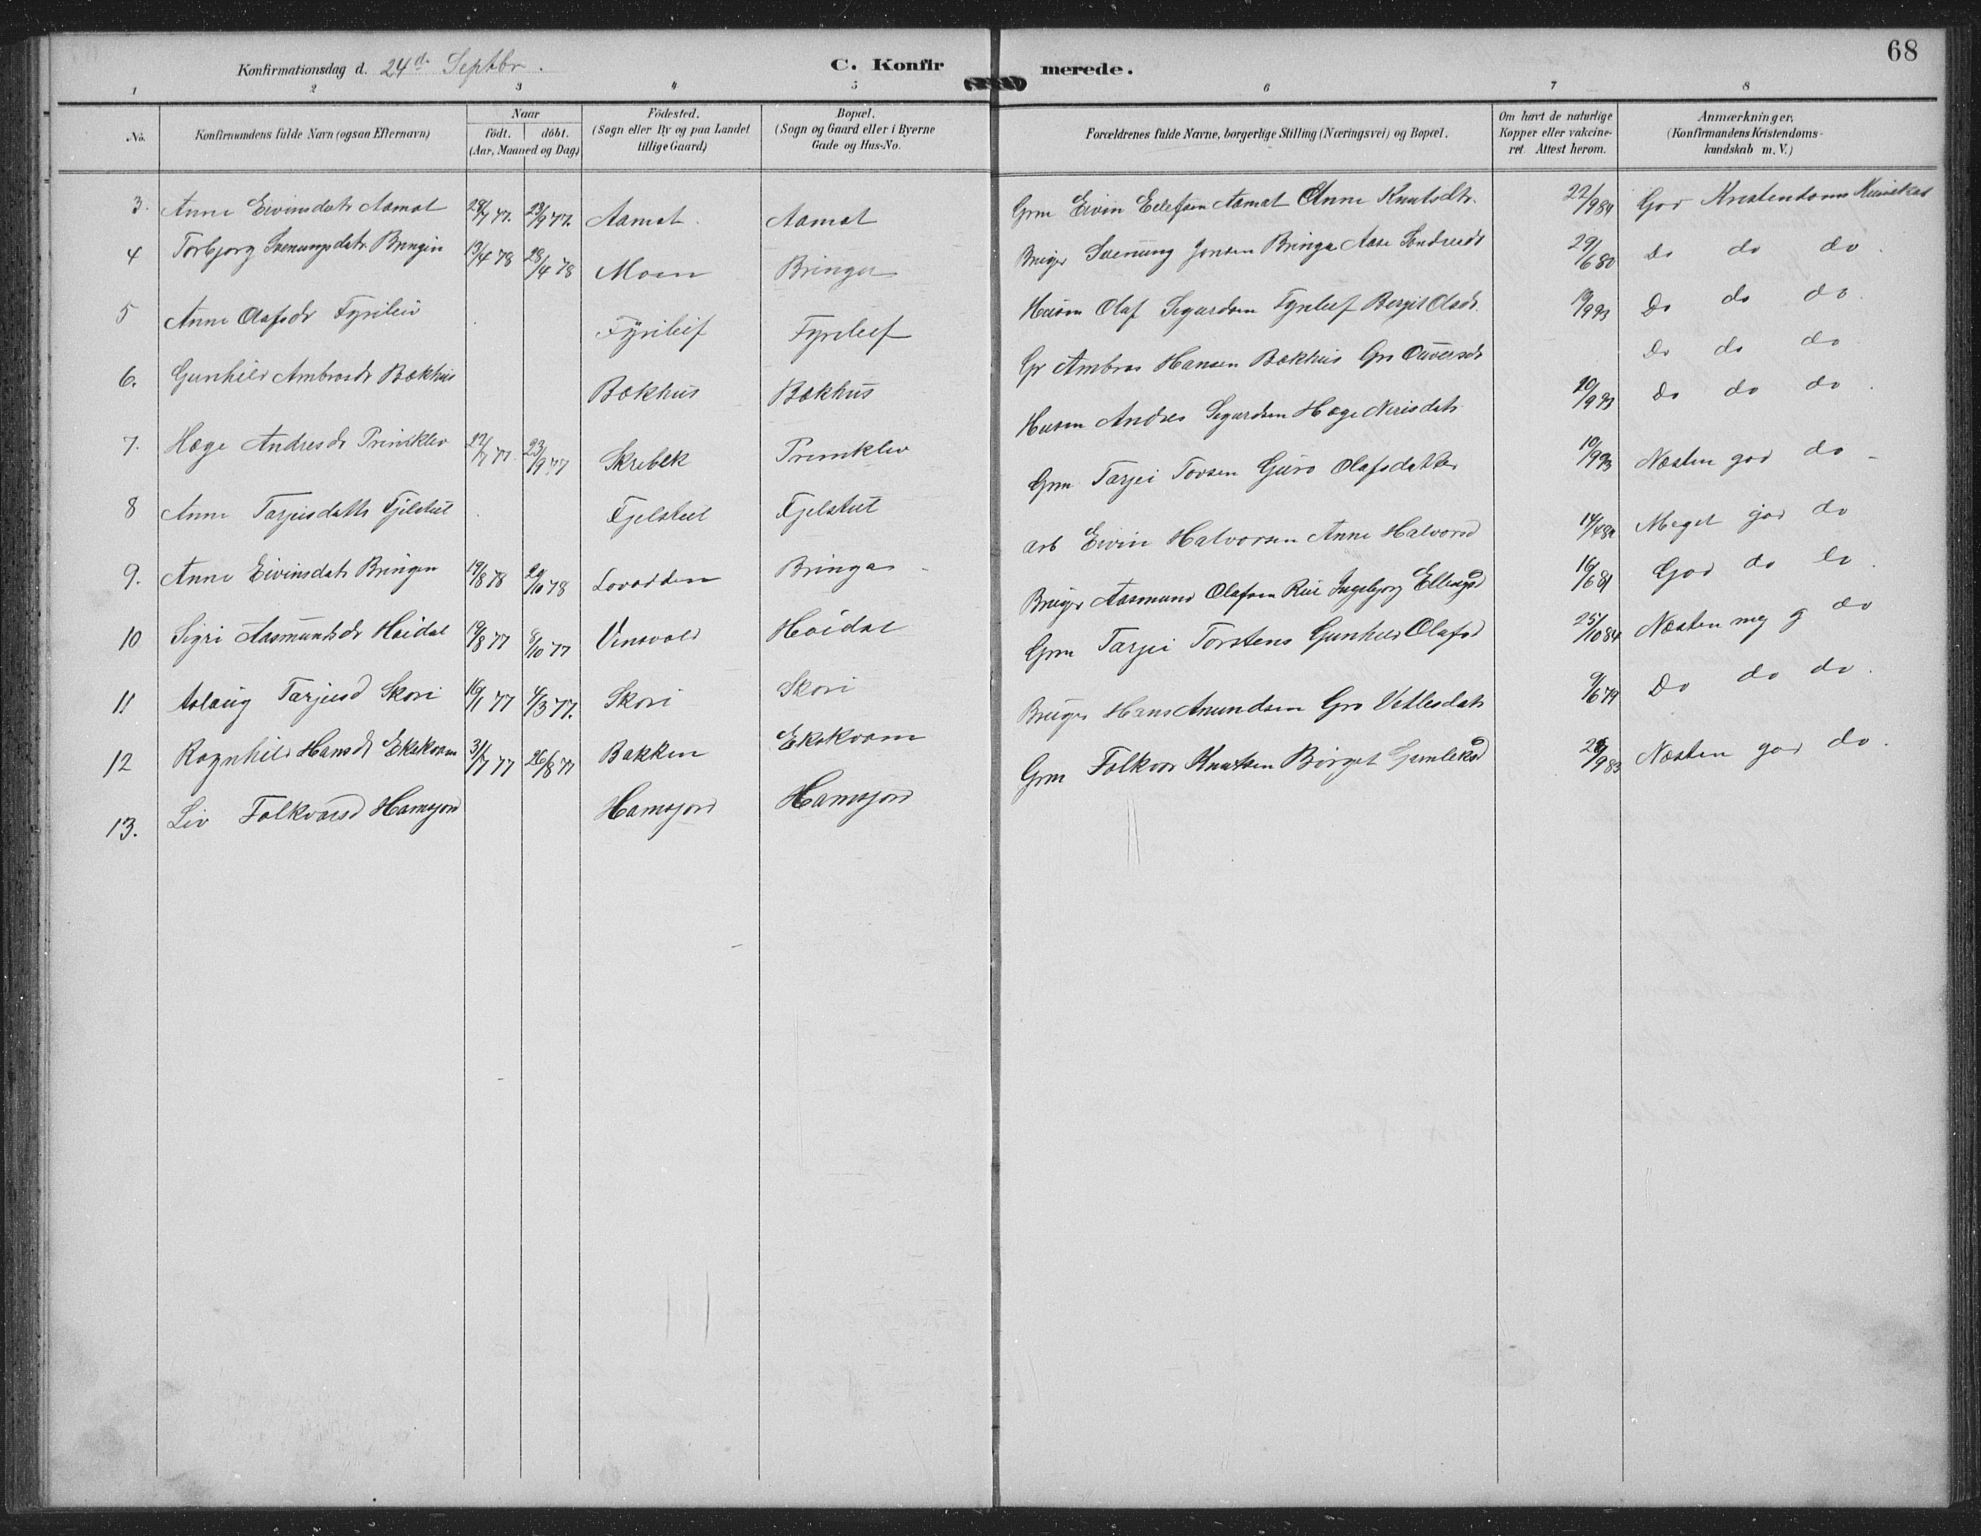 68
Konfirmationsdag d. 24d. Septbr.
C. Konfirmerede.
1 2 3 4 5 6 7 8
No.
Konfirmandens fulde Navn (ogsaa Efternavn)
Naar
födt. döbt.
(Aar, Maaned og Dag)
Födested.
(Sogn eller By og paa Landet
tillige Gaard)
Bopæl.
(Sogn og Gaard eller i Byerne
Gade og Hus-No.
Forældrenes fulde Navne, borgerlige Stilling (Næringsvei) og Bopæl.
Om havt de naturlige
Kopper eller vakcine-
ret. Attest herom.
Anmærkninger,
(Konfirmandens Kristendoms-
kundskab m. V.)
3. Anne Eivinsdatr Aamot 28/7 77. 23/9 77. Aamot. Aamot Grm Eivin Ellefsen Aamot Anne Knutsdtr. 22/9 84 God Kristendoms Kundskab
4 Torbjorg Svenungsdatr Bringen 13/4 78 28/4 78 Moen Bringen Bruger Svenung Jonsen Bringa Aase Sondresdt 29/6 80 Do do do.
5 Anne Olafsdr Fyrileiv Fyrileif Fyrileif Husm Olaf Sigurdsen Fyrileif Bergit Olsdr. 19/9 93 Do do do.
6. Gunhild Ambrosdr Bækhus Bækhus Bækhus Gr Ambros Hansen Bækhus Gro Ouversdr Do do do
7. Hæge Andresdr Primklev 22/7 77. 23/9 77 Skrebek Primklev Husm Andres Sigurdsen Hæge Nerisdatr 10/9 93 Do do do.
8 Anne Tarjeisdattr Fjelstul Fjelstul Fjelstul Grm Tarjei Tovsen Guro Olafsdatter 10/9 93 Næsten god do
9. Anne Eivinsdatr Bringen 19/8 78 20/10 78 Lovodden Bringa Arb Eivin Halvorsen Anne Halvorsd 14/4 80 Meget god do
10 Sigri Aasmundsdr Höidal 19/8 77 8/10 77 Vinsvold Höidal Bruger Aasmund Olafsen Rui Ingebjorg Ellingsd 16/6 81 God do do.
11 Aslaug Tarjeisd Skori 16/1 77 4/3 77. Skori Skori Grm Tarjei Torstens Gunhild Olafsd 25/10 84 Næsten meg g do
12 Ragnhild Hansdr Ekskvam 31/7 77 26/8 77 Bakken Ekskvam Bruger Hans Anundsen Gro Vetlesdatr 9/6 79 Do do do.
13. Liv Folkvarsd Hamsjord Hamsjord Hamsjord Grm Folkvar Knutsen Börget Gunleiksd 26/9 83 Næsten god do.